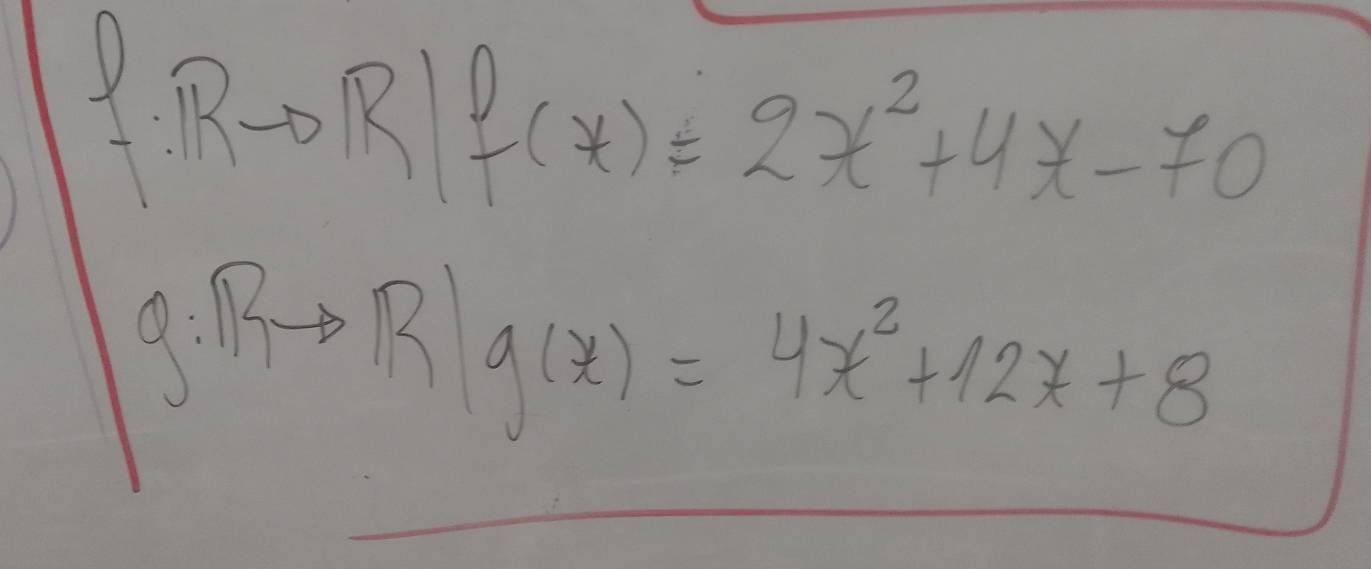 f:ℝ→ℝ|f(x)=2x²+4x-70
g:ℝ→ℝ|g(x)=4x²+12x+8